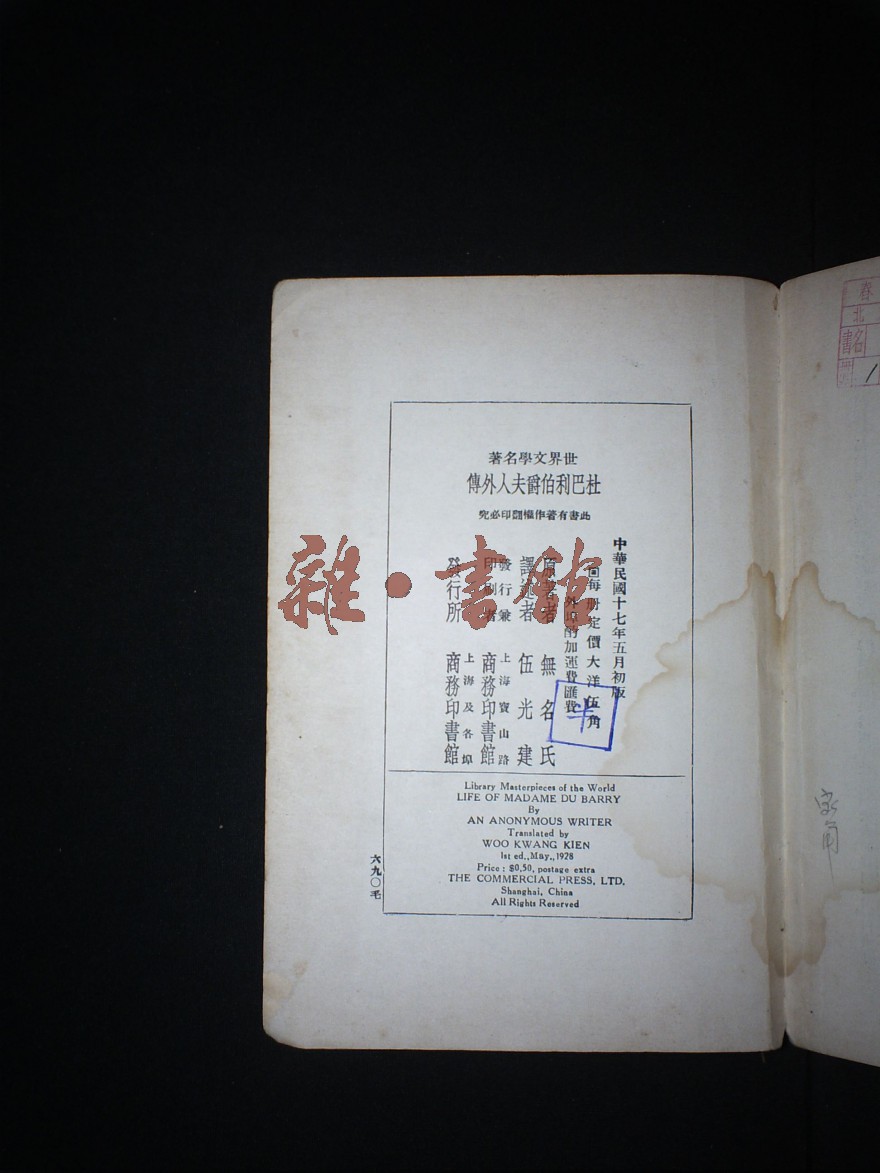 世界文學名著
杜巴利伯爵夫人外傳
此書有著作權翻印必究
中華民國十七年五月初版
每册定價大洋伍角
外埠酌加運費匯費
原著者 無名氏
譯述者 伍光建
發行兼印刷者 上海寶山路 商務印書館
發行所 上海及各埠 商務印書館
Library Masterpieces of the World
LIFE OF MADAME DU BARRY
By
AN ANONYMOUS WRITER
Translated by
WOO KWANG KIEN
1st ed., May., 1928
Price: $0.50, postage extra
THE COMMERCIAL PRESS, LTD.
Shanghai, China
All Rights Reserved
六九〇毛
雜·書館
半
北
書名
1